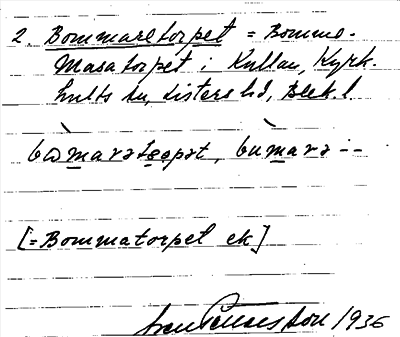 2. Bommaretorpet = Bomma-
Masatorpet i Kullan, Kyrk-
hults sn, Listers hd, Blek. l.
bωmarətɷrpət, bùmarə --
[= Bommatorpet ek]
1936